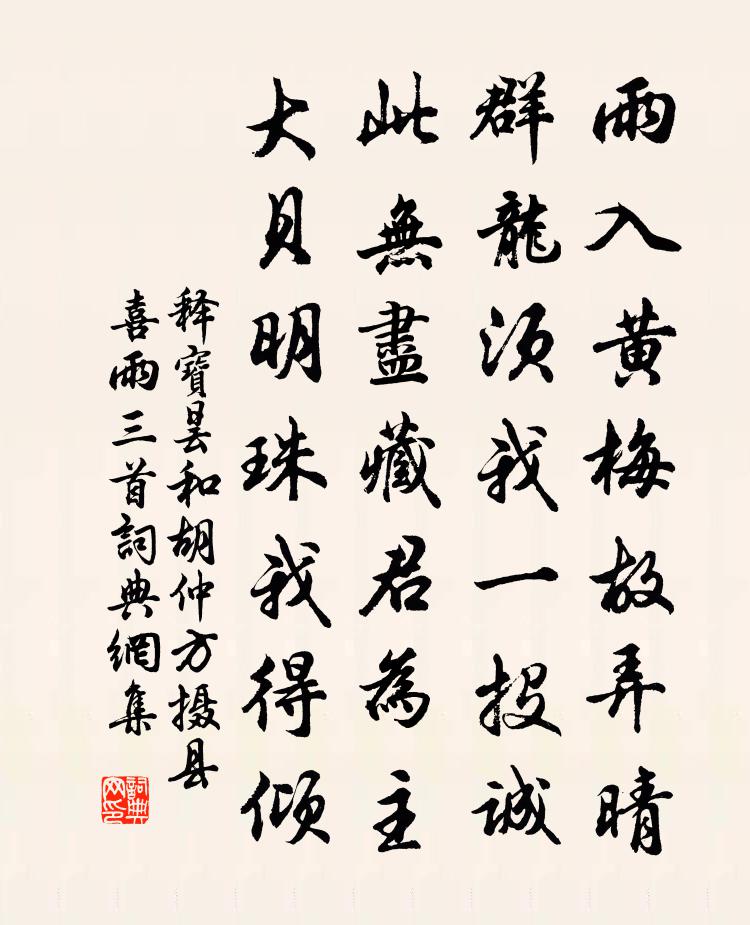 雨入黄梅故弄晴
群龍須我一投誠
此無盡藏君為主
大貝明珠我得傾
释寶昙和胡仲方摄县
喜雨三首詞典網集
詞典网印